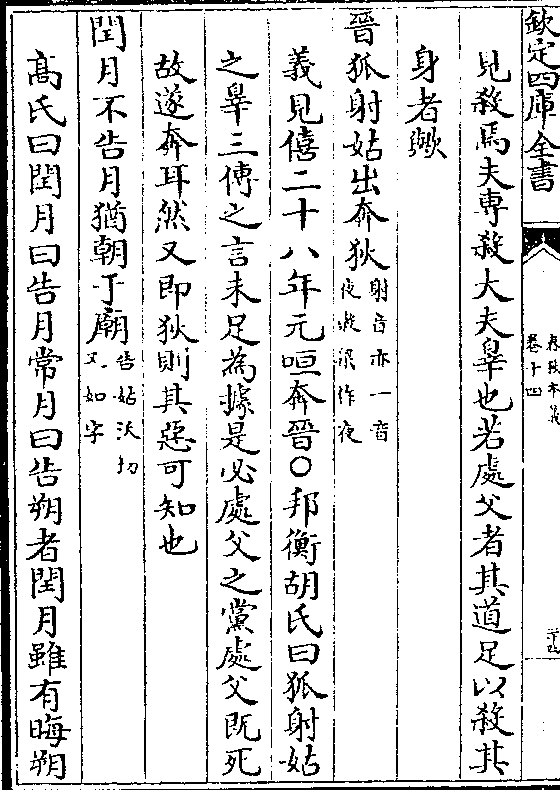 欽定四庫全書
春秋本義
卷十四
二十四
見殺焉夫専殺大夫辠也若處父者其道足以殺其
身者歟
晉狐射姑出奔狄射音亦一音夜榖梁作夜
義見僖二十八年元咺奔晉○邦衡胡氏曰狐射姑
之辠三傳之言未足為據是必處父之黨處父既死
故遂奔耳然又即狄則其惡可知也
閏月不告月猶朝于廟告姑沃切又如字
髙氏曰閏月曰告月常月曰告朔者閏月雖有晦朔